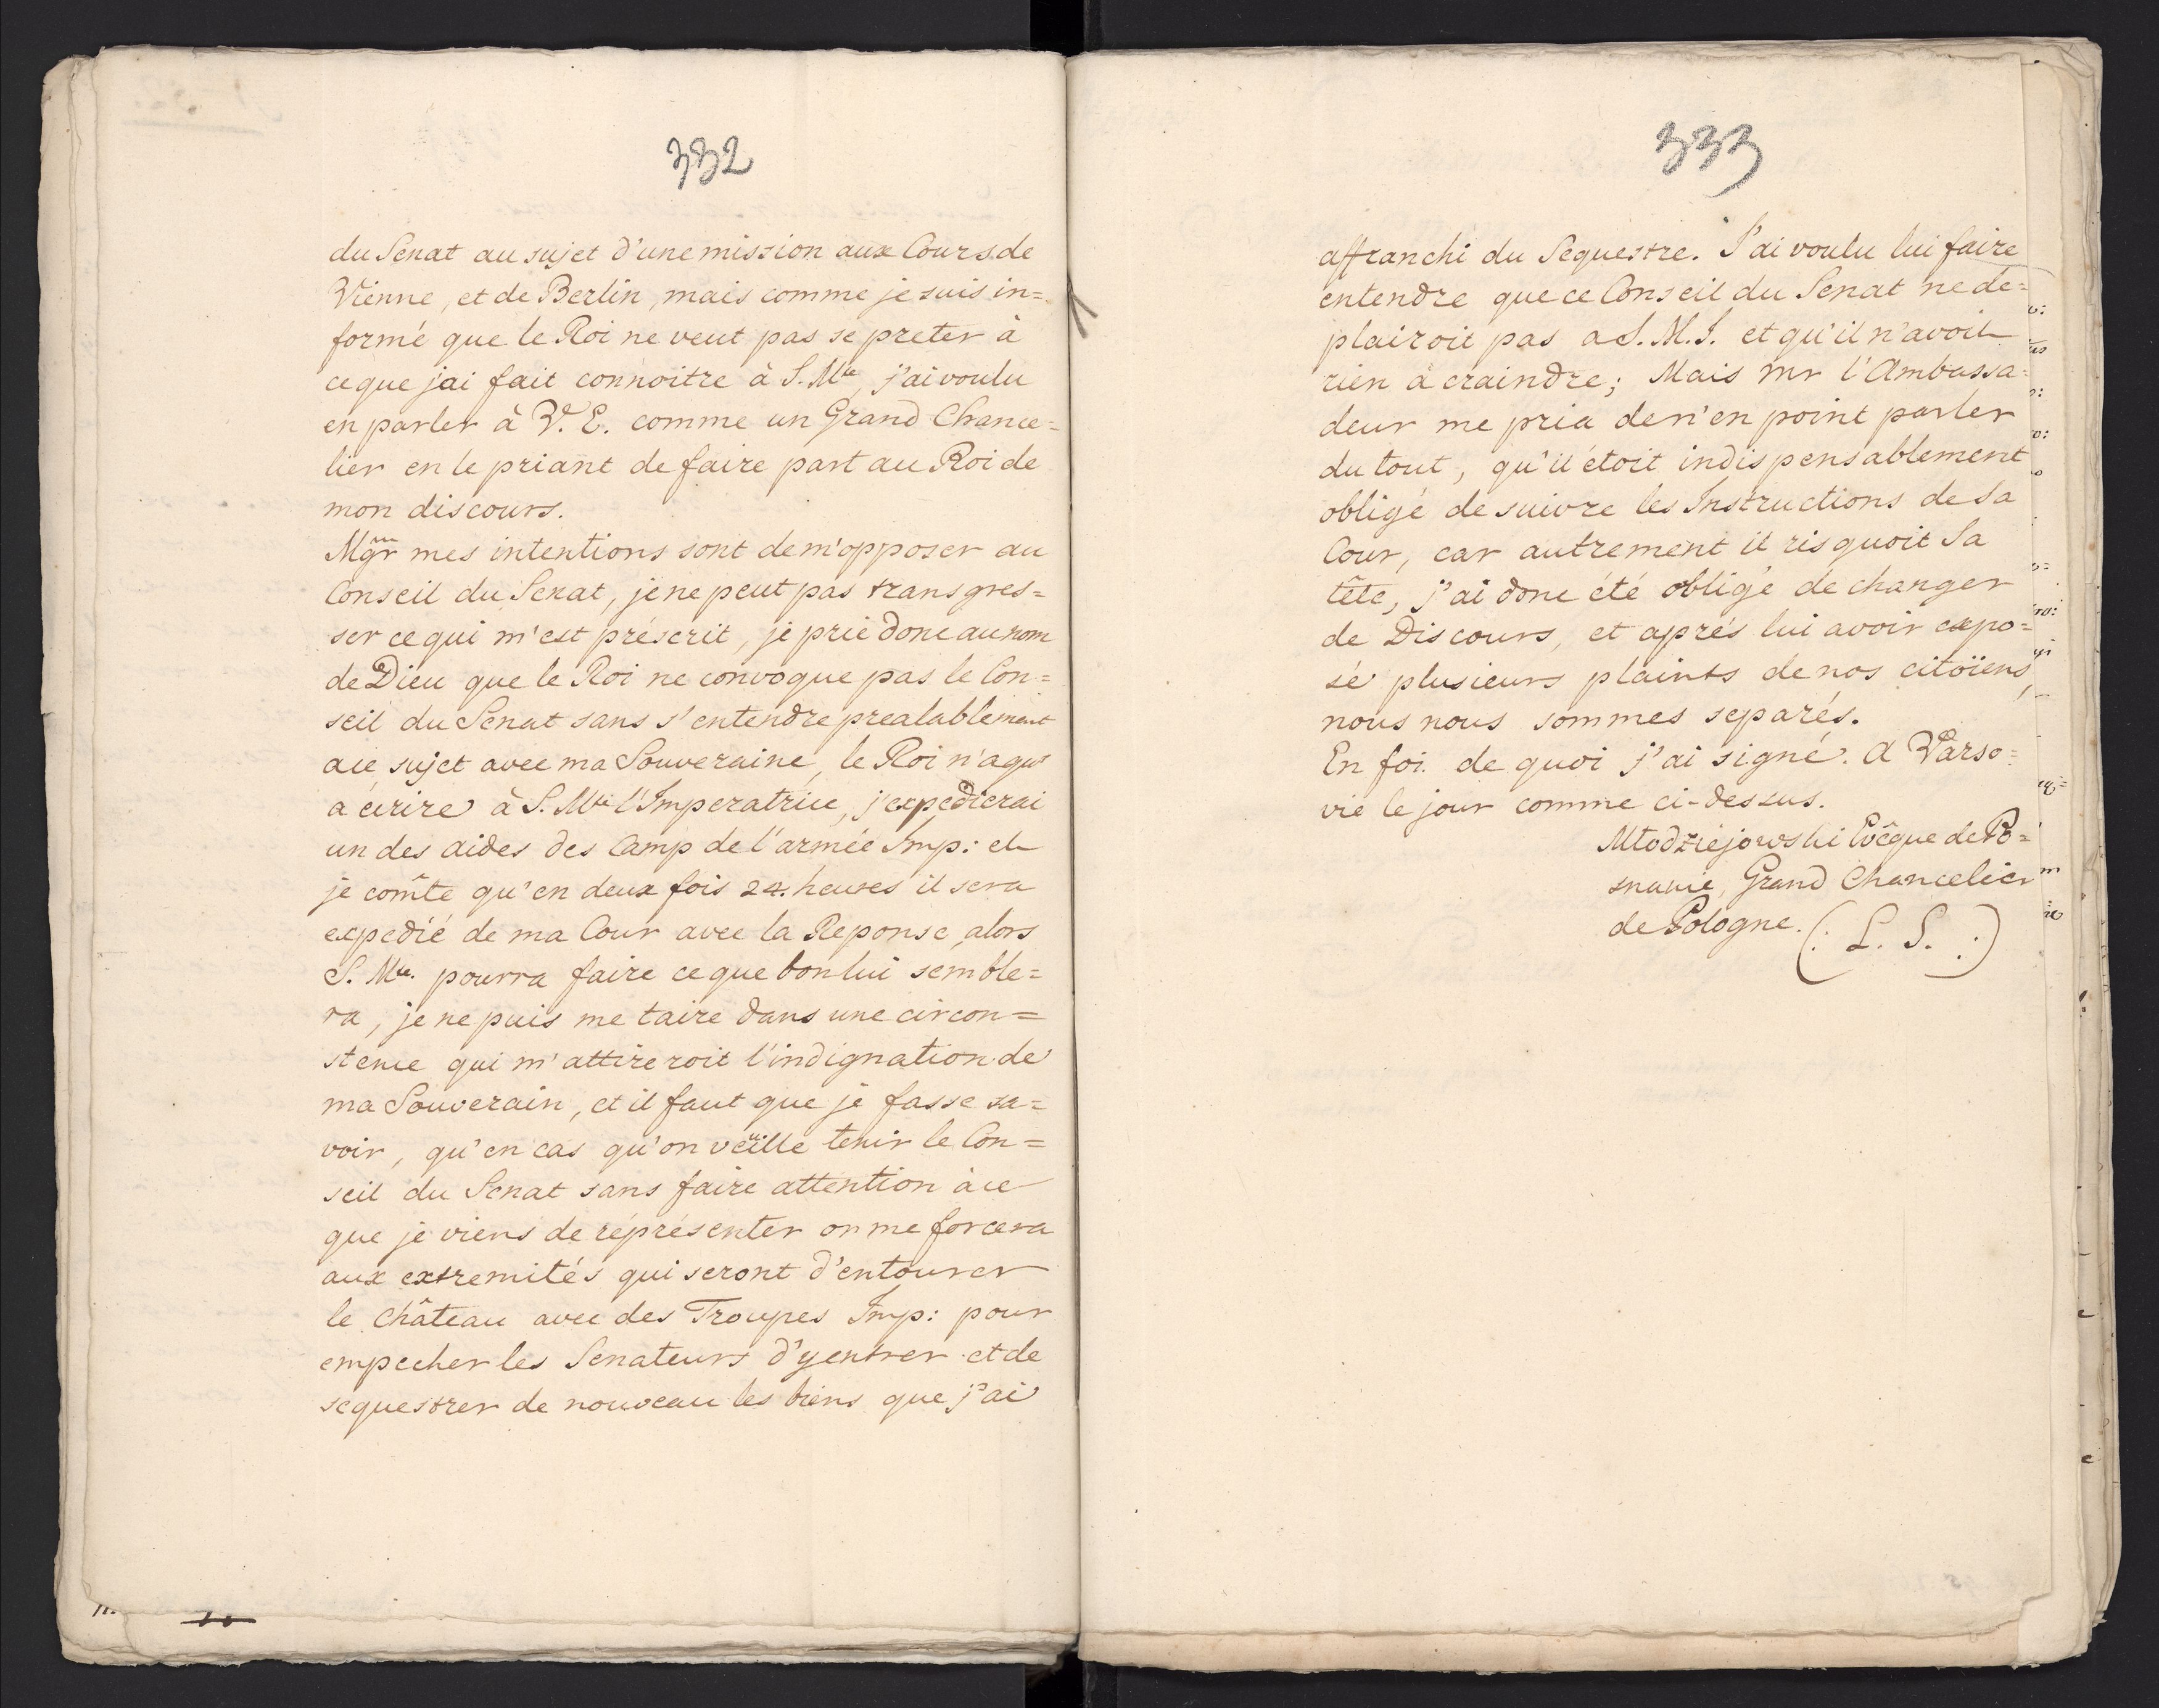 332
du Senat au sujet d'une mission aux Cours de
Vienne, et de Berlin, mais comme je suis in=
formé que le Roi ne veut pas se preter à
ce que jai fait connoitre à S. Mté, j'ai voulu
en parler à V. E. comme un Grand Chance=
lier en le priant de faire part au Roi de
mon discours.
Mgr mes intentions sont de m'opposer au
Conseil du Senat, je ne peut pas transgres=
ser ce qui m'est préscrit, je prie donc au nom
de Dieu que le Roi ne convoque pas le Con=
seil du Senat sans s'entendre prealablement
au sujet avec ma Souveraine, le Roi n'a qu'
à écrire à S. Mté l'Imperatrice, j'expedierai
un des aides des Camp de l'armée Imp: et
je comte qu'en deux fois 24. heures il sera
expedié de ma Cour avec la Reponse, alors
S. Mté. pourra faire ce que bon lui semble=
ra, je ne puis me taire dans une circon=
stence qui m'attireroit l'indignation de
ma Souverain, et il faut que je fasse sa=
voir, qu'en cas qu'on veuille tenir le Con=
seil du Senat sans faire attention à ce
que je viens de réprésenter on me forcera
aux extremités qui seront d'entourer
le Château avec des Troupes Imp: pour
empecher les Senateurs d'y entrer et de
sequestrer de nouveau les biens que j'ai
333
affranchi du Sequestre. J'ai voulu lui faire
entendre que ce Conseil du Senat ne de=
plairoit pas a S. M. I. et qu'il n'avoit
rien à craindre; Mais mr l'Ambassa=
deur me pria de n'en point parler
du tout, qu'il étoit indispensablement
obligé de suivre les Instructions de Sa
Cour, car autrement il risquoit Sa
tête, j'ai donc été obligé de changer
de Discours, et aprés lui avoir expo=
sé plusieurs plaints de nos citoïens,
nous nous sommes separés.
En foi de quoi j'ai signé. A Varso=
vie le jour comme ci-dessus.
Młodziejowski Evêque de Po=
snanie, Grand Chancelier
de Pologne. (: L. S. :)